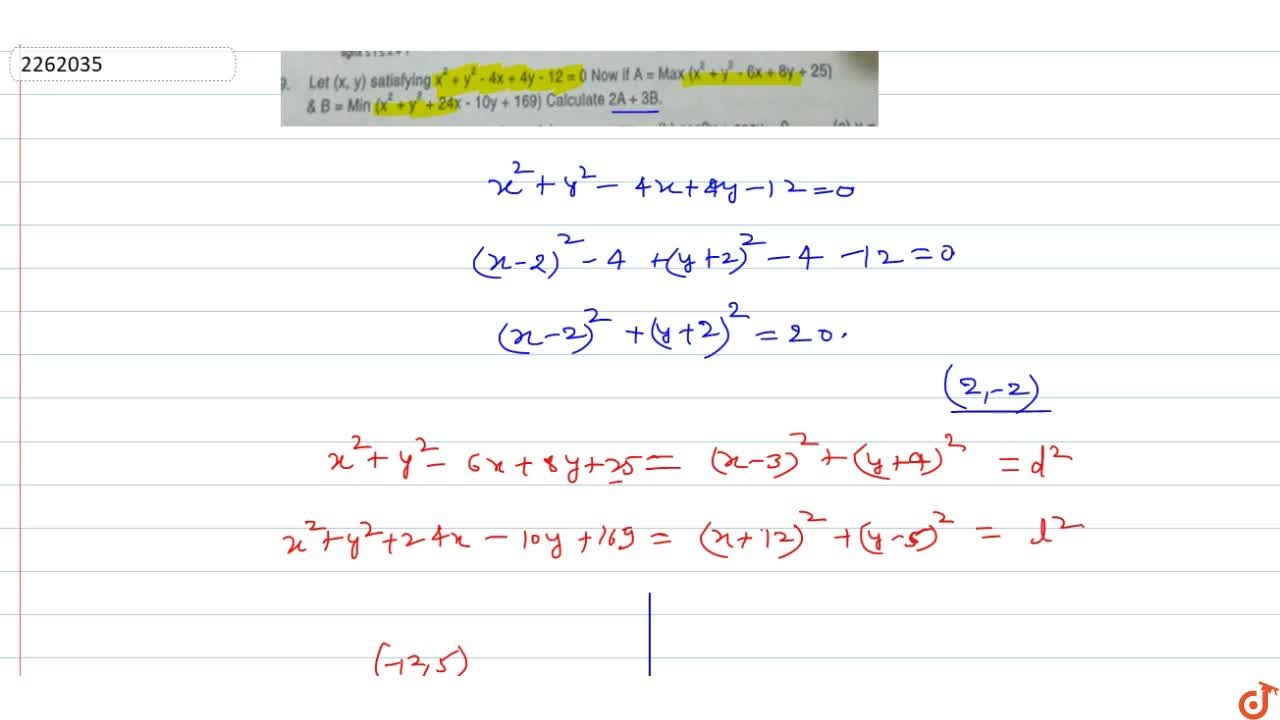 2262035
9. Let (x, y) satisfying x² + y² - 4x + 4y - 12 = 0 Now if A = Max (x² + y² - 6x + 8y + 25)
& B = Min (x² + y² + 24x - 10y + 169) Calculate 2A + 3B.
x² + y² - 4x + 4y - 12 = 0
(x-2)² - 4 + (y+2)² - 4 - 12 = 0
(x-2)² + (y+2)² = 20.
(2,-2)
x² + y² - 6x + 8y + 25 = (x-3)² + (y+4)² = d²
x² + y² + 24x - 10y + 169 = (x+12)² + (y-5)² = l²
(-12,5)